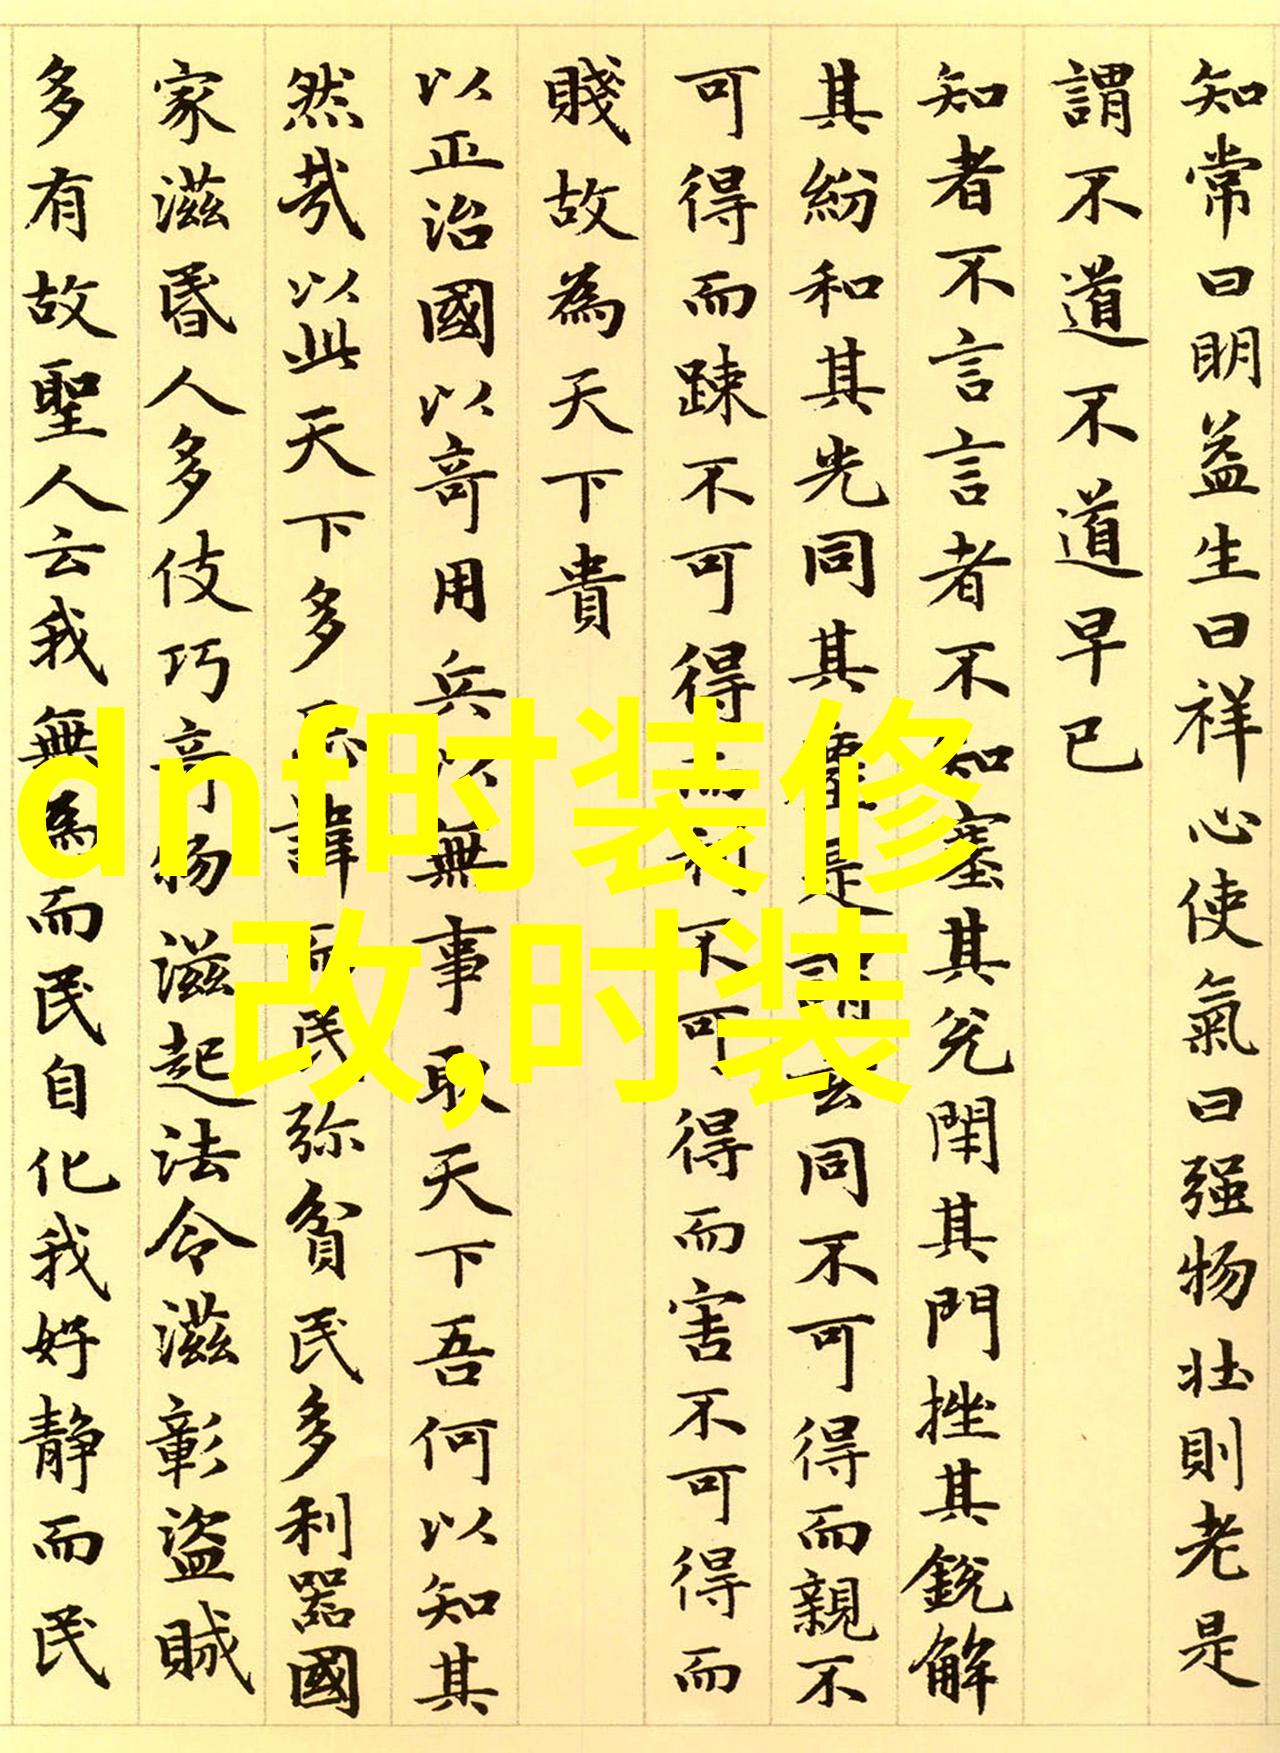 知常曰明益生曰祥心使氣曰强物壮則老是
謂不道不道早已
知者不言言者不知塞其兊閇其門挫其銳解
其紛和其光同其塵是謂玄同不可得而親不
可得而踈不可得而利不可得而害不可得而
賤故為天下貴
以正治國以竒用兵以無事取天下吾何以知其
然㦲以此天下多忌諱而民弥貧民多利器國
家滋昬人多伎巧竒物滋起法令滋彰盜賊
多有故聖人云我無為而民自化我好靜而民
dnf时装修
改,时装